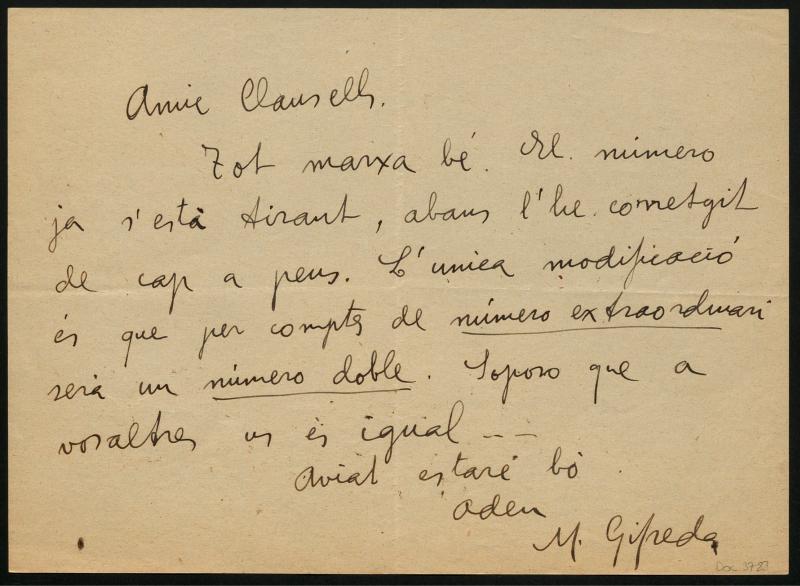 Amic Clausells.
Tot marxa bé. El número
ja s'està tirant, abans l'he corretgit
de cap a peus. L'unica modificació
és que per comptes de número extraordinari
serà un número doble. Soposo que a
vosaltres us és igual --
Aviat estaré bò.
Adeu
M. Gifreda
Doc 3723